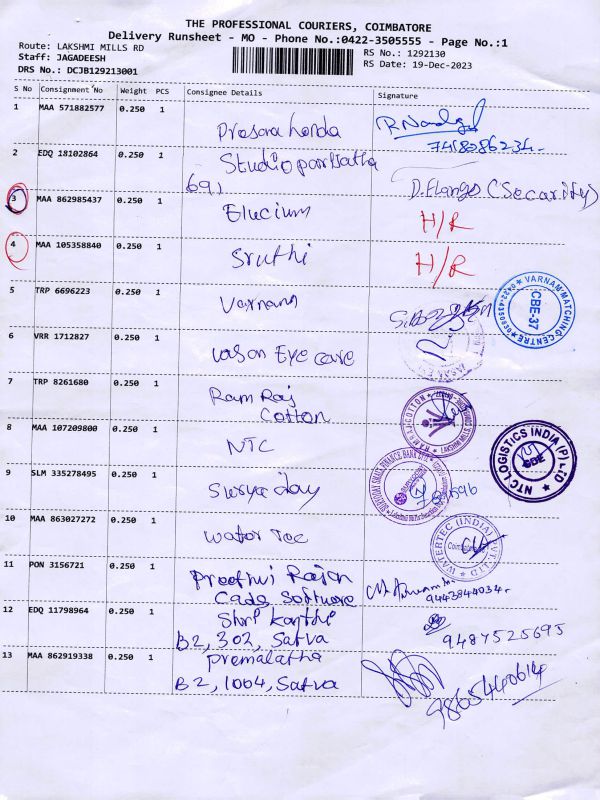 THE PROFESSIONAL COURIERS, COIMBATORE
Delivery Runsheet - MO - Phone No.:0422-3505555 - Page No.:1
Route: LAKSHMI MILLS RD
RS No.: 1292130
Staff: JAGADEESH
RS Date: 19-Dec-2023
DRS No.: DCJB129213001
S No Consignment No Weight PCS Consignee Details Signature
1 MAA 571882577 0.250 1
Prasara honda
7418086234.
2 EDQ 18102864 0.250 1
Studio parisatha
691
D. Elango (Secarity)
3 MAA 862985437 0.250 1
Elucium H/R
4 MAA 105358840 0.250 1
Sruthi H/R
5 TRP 6696223 0.250 1
Varnam
VARNAM MATCHING CENTRE
CBE-37
6 VRR 1712827 0.250 1
Vasan Eye care
7 TRP 8261680 0.250 1
Ram Raj
Cotton
RAMRAJ COTTON
8 MAA 107209800 0.250 1
NTC
NTC LOGISTICS INDIA (P) LTD
CBE
9 SLM 335278495 0.250 1
Suryaday
10 MAA 863027272 0.250 1
Water Tec
WATERTEC (INDIA) PVT. LTD
Coimbatore
11 PON 3156721 0.250 1
Preethvi Rajan
Cade Software
9443844034.
12 EDQ 11798964 0.250 1
Shri karthi
B2, 302, Satva
9487525695
13 MAA 862919338 0.250 1
premalatha
B2, 1004, Satva
9865440614